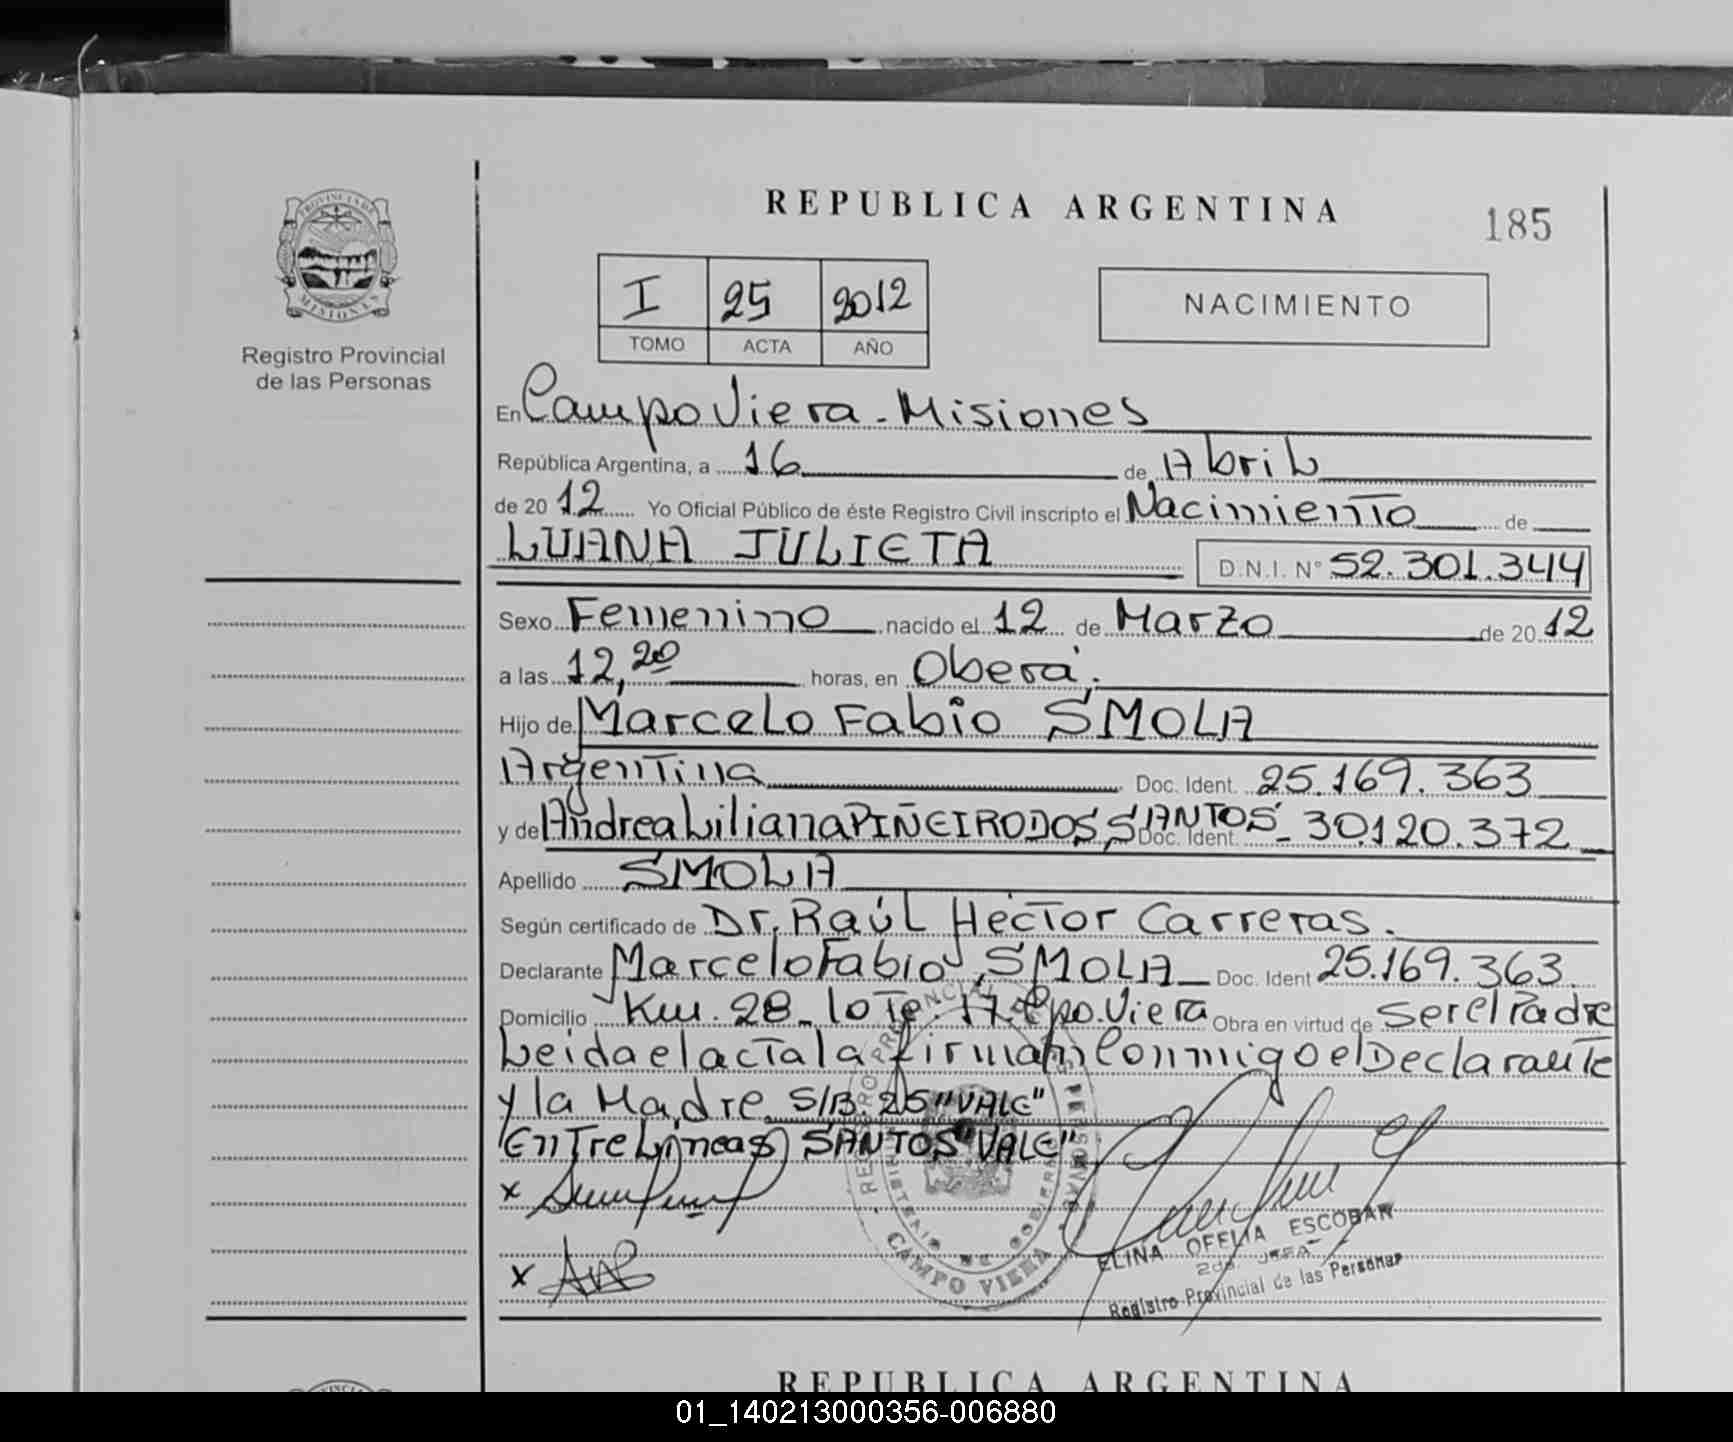 PROVINCIA DE
MISIONES
Registro Provincial
de las Personas
REPUBLICA ARGENTINA
185
I 25 2012
TOMO ACTA AÑO
NACIMIENTO
En Campo Viera - Misiones
República Argentina, a 16 de Abril
de 2012 Yo Oficial Público de éste Registro Civil inscripto el Nacimiento de
LUANA JULIETA D.N.I. N° 52.301.344
Sexo Femenino nacido el 12 de Marzo de 2012
a las 12,20 horas, en Oberá.
Hijo de Marcelo Fabio SMOLA
Argentina Doc. Ident. 25.169.363
y de Andrea Liliana PIÑEIRO DOS SANTOS - Doc. Ident. 30.120.372
Apellido SMOLA
Según certificado de Dr. Raúl Héctor Carreras.
Declarante Marcelo Fabio, SMOLA - Doc. Ident 25.169.363.
Domicilio Km. 28 - lote 17. Cpo. Viera Obra en virtud de Ser el Padre
Leida el acta la firman Conmigo el Declarante
y la Madre. S/B. 25 "VALE"
Entre Líneas SANTOS "VALE"
x
x
REGISTRO PROVINCIAL DE LAS PERSONAS
MINISTERIO DE GOBIERNO
CAMPO VIERA
ELINA OFELIA ESCOBAR
2da. JEFA
Registro Provincial de las Personas
REPUBLICA ARGENTINA
01_140213000356-006880